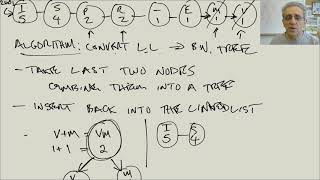 I S P R - E M V
5 4 2 2 1 1 1 1
ALGORITHM: CONVERT L.L → BIN. TREE
- TAKE LAST TWO NODES
COMBINE THEM INTO A TREE
- INSERT BACK INTO THE LINKED LIST
V+M = VM
1+1 = 2
I S
5 4
V M